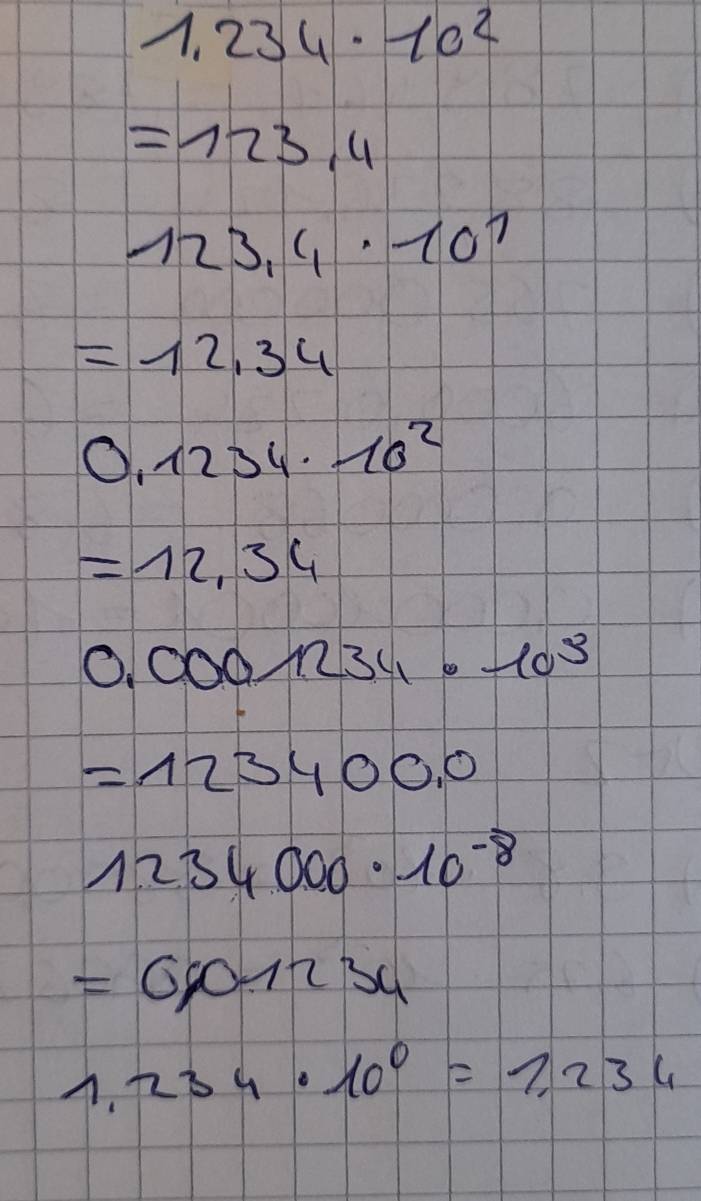 1.234 · 10²
= 123,4
123,4 · 10¹
= 12,34
0,1234 · 10²
= 12,34
0,0001234 · 10⁹
= 123400,0
1234000 · 10⁻⁸
= 0,01234
1,234 · 10⁰ = 1,234